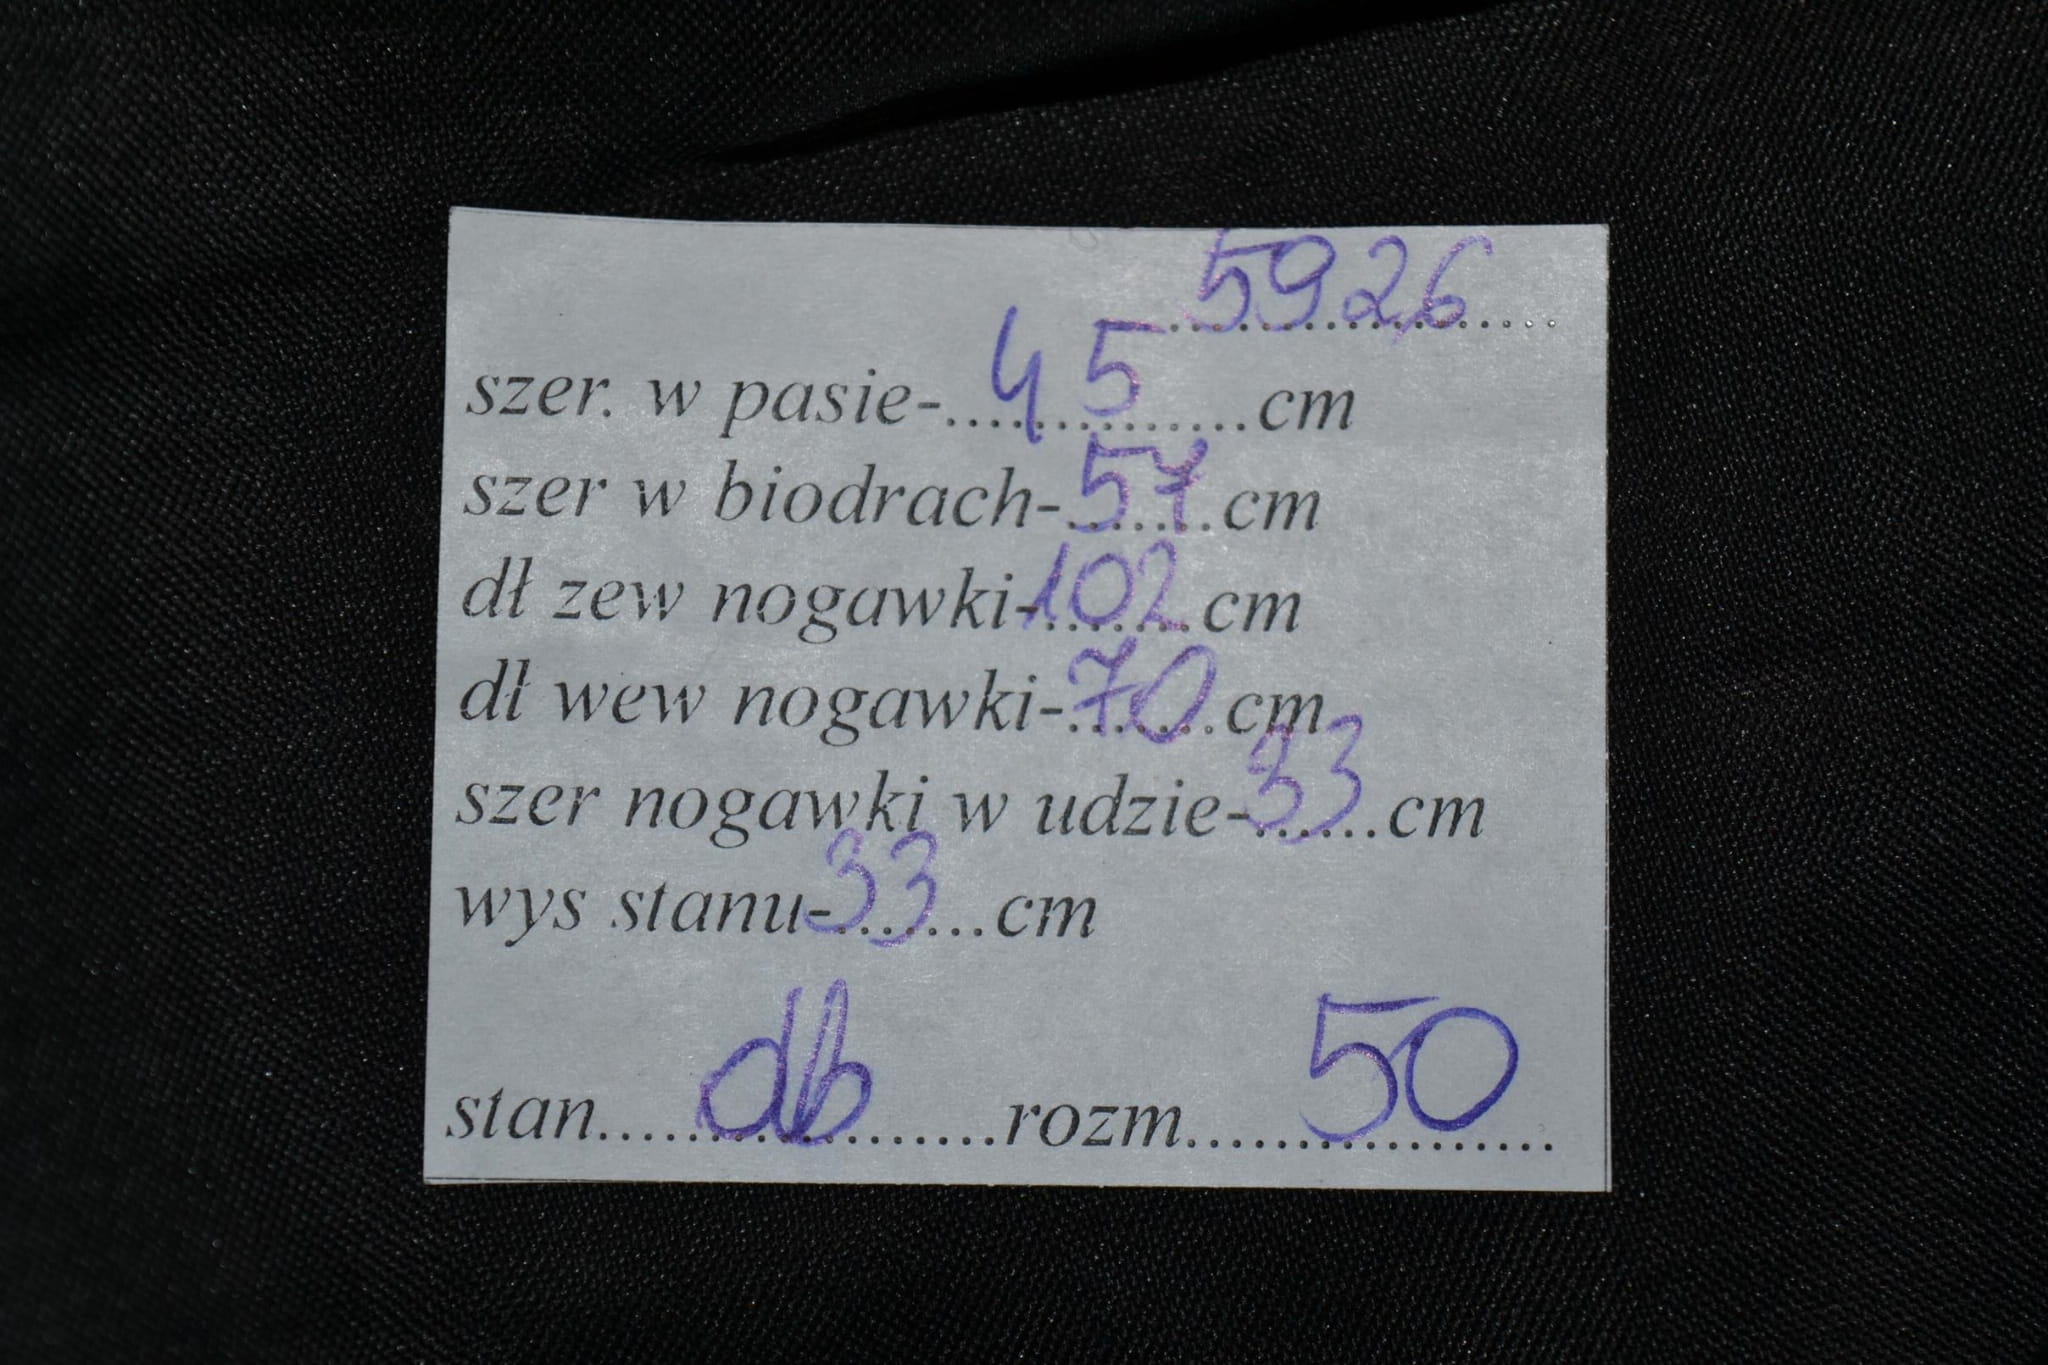 5926
szer. w pasie-....45....cm
szer w biodrach-.57.cm
dł zew nogawki-102.cm
dł wew nogawki-.70.cm
szer nogawki w udzie-33...cm
wys stanu-33...cm
stan......db........rozm......50......